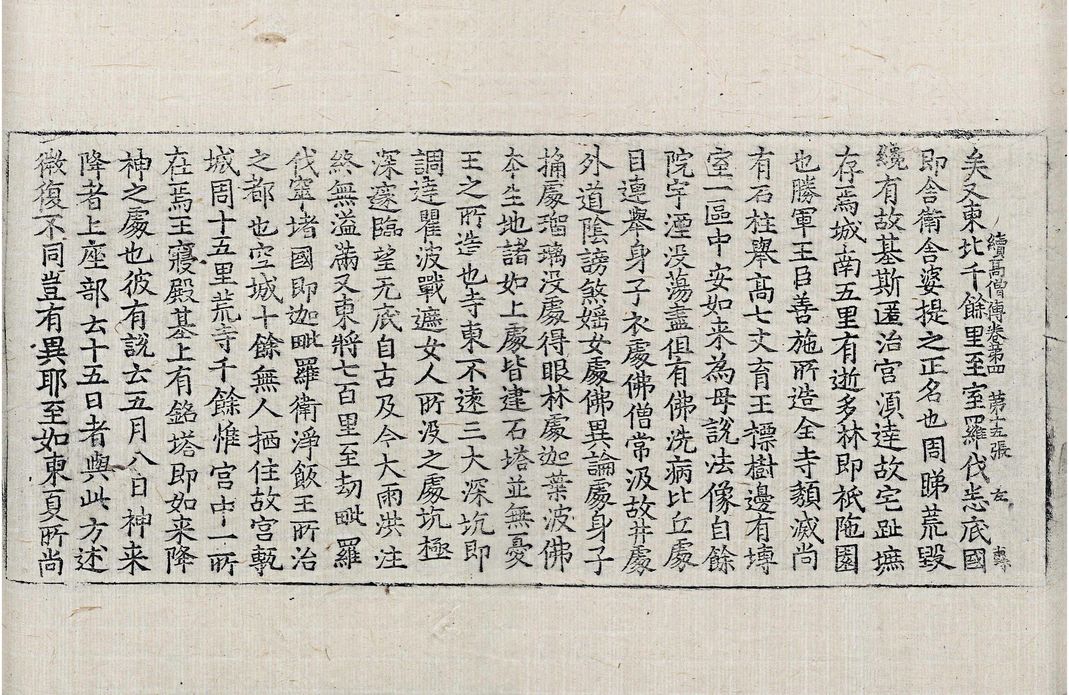 續高僧傳卷第四　第十五張　左
矣又東北千餘里至室羅伐悉底國
即舍衛舍婆提之正名也周睇荒毀
纔有故基斯匿治宮湏達故宅趾墌
存焉城南五里有逝多林即祇陁園
也勝軍王臣善施所造全寺頽滅尚
有石柱舉髙七丈育王標樹邊有塼
室一區中安如来為母說法像自餘
院宇湮没蕩盡但有佛洗病比丘處
目連舉身子衣處佛僧常汲故井處
外道陰謗煞婬女處佛異論處身子
捔處瑠璃没處得眼林處迦葉波佛
夲生地諸如上處皆建石塔並無憂
王之所造也寺東不遠三大深坑即
調達瞿波戰遮女人所没之處坑極
深邃臨望无底自古及今大雨洪注
終無溢滿又東將七百里至劫毗羅
伐窣堵國即迦毗羅衛淨飯王所治
之都也空城十餘無人栖住故宮甎
城周十五里荒寺千餘惟宮中一所
在焉王寢殿基上有銘塔即如来降
神之處也彼有說云五月八日神来
降者上座部云十五日者與此方述
微復不同豈有異耶至如東夏所尚